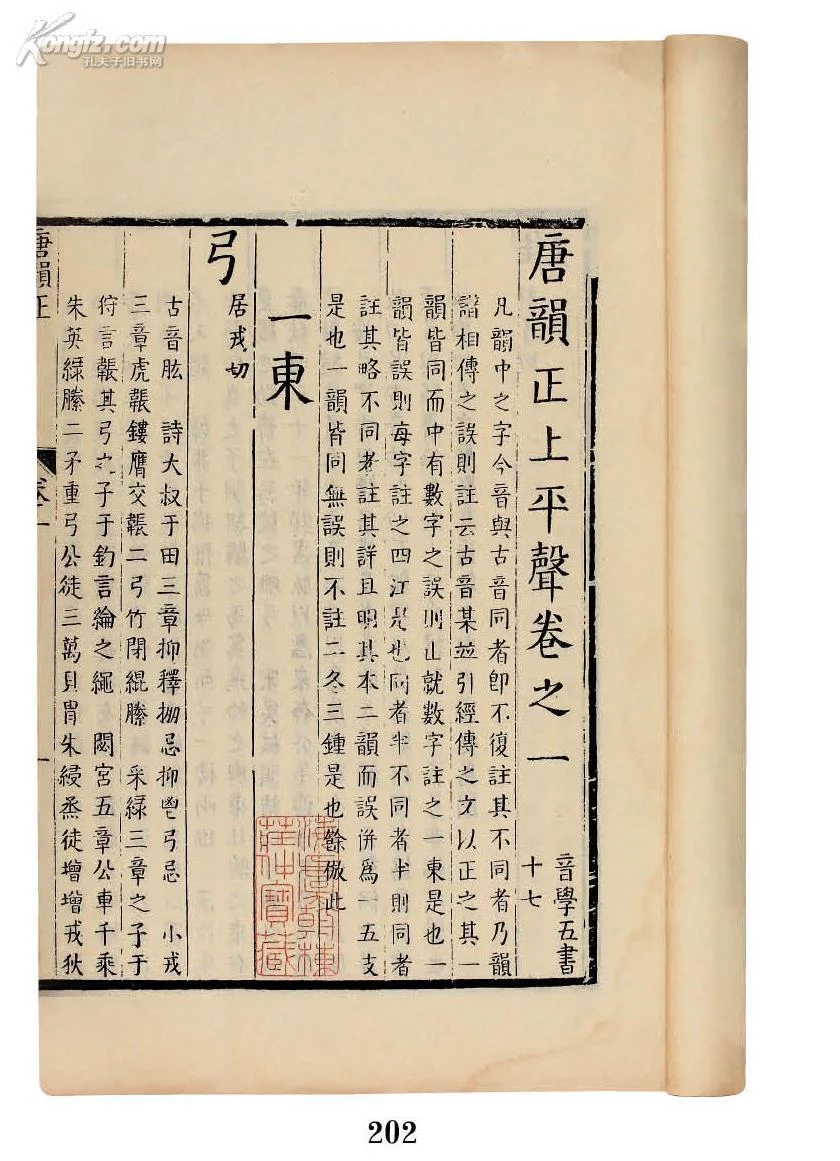 Kongfz.com
孔夫子旧书网
唐韻正上平聲卷之一
音學五書
十七
凡韻中之字今音與古音同者卽不復註其不同者乃韻
譜相傳之誤則註云古音某並引經傳之文以正之其一
韻皆同而中有數字之誤則止就數字註之一東是也一
韻皆誤則每字註之四江是也同者半不同者半則同者
註其略不同者註其詳且明其本二韻而誤併爲一五支
是也一韻皆同無誤則不註二冬三鍾是也餘倣此
一東
弓
居戎切
古音肱 詩大叔于田三章抑釋掤忌抑鬯弓忌 小戎
三章虎韔鏤膺交韔二弓竹閉緄縢 采綠三章之子于
狩言韔其弓之子于釣言綸之繩 閟宮五章公車千乘
朱英綠縢二矛重弓公徒三萬貝冑朱綅烝徒增增戎狄
唐韻正
卷一
一
202